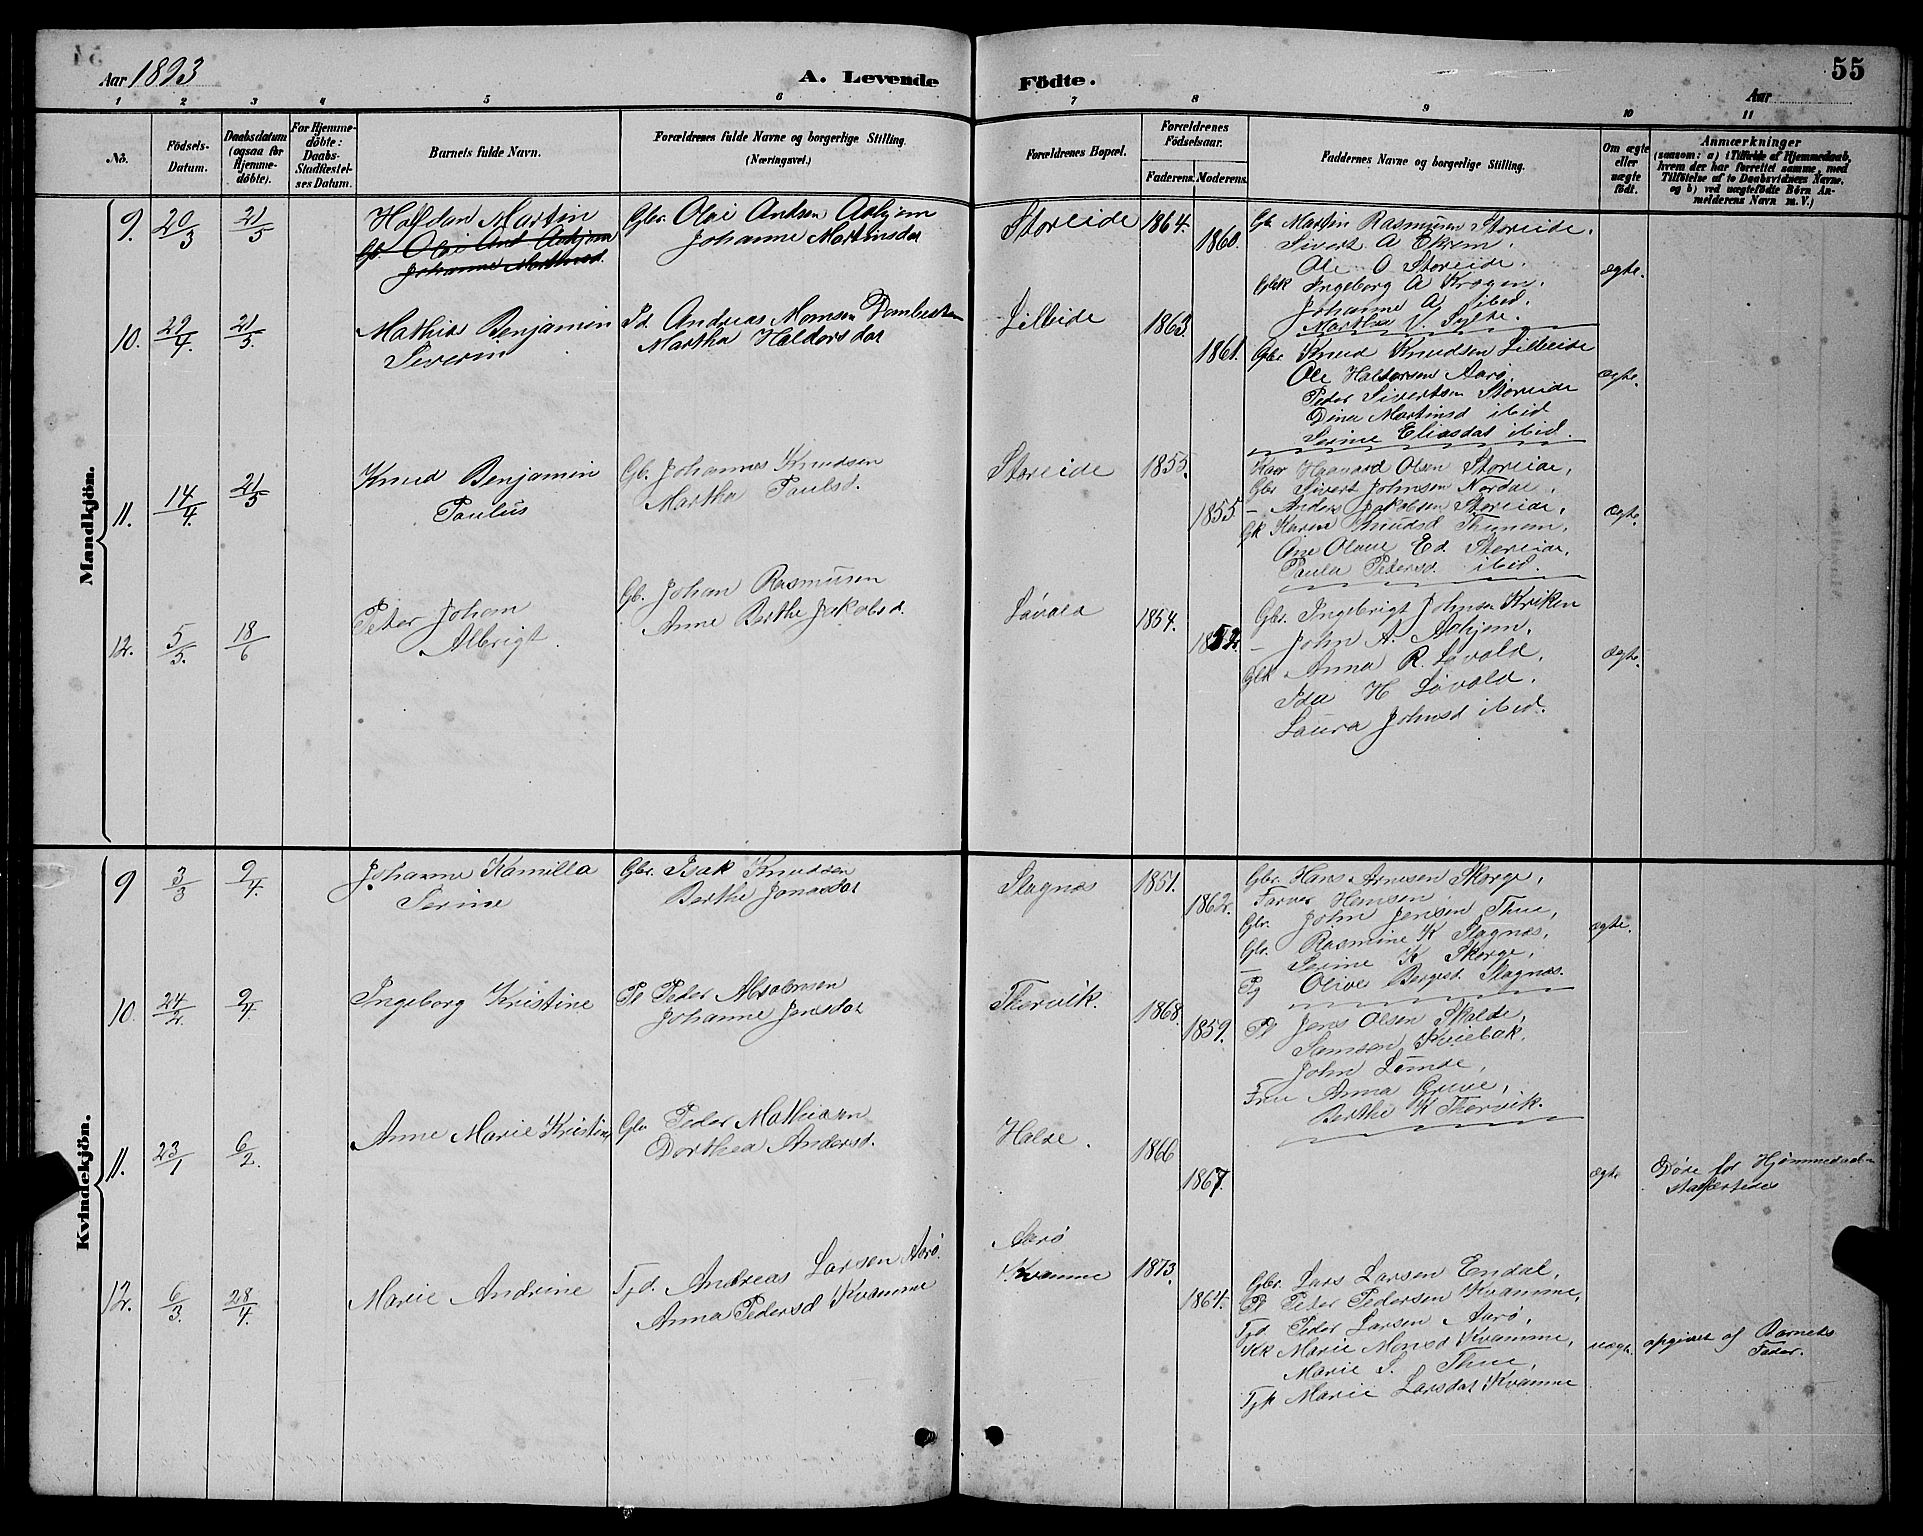 Aar 1893
A. Levende
Födte.
55
Aar
1 2 3 4 5 6 7 8 9 10 11
No.
Födsels-Datum.
Daabsdatum (ogsaa for Hjemme-döbte).
For Hjemme-döbte: Daabs-Stadfæstel-ses Datum.
Barnets fulde Navn.
Forældrenes fulde Navne og borgerlige Stilling.
(Næringsvei.)
Forældrenes Bopæl.
Forældrenes Födselsaar.
Faderens. Moderens.
Faddernes Navne og borgerlige Stilling.
Om ægte eller uægte födt.
Anmærkninger
(saasom: a) i Tilfælde af Hjemmedaab, hvem der har forrettet samme, med Tilföielse af to Daabsvidners Navne, og b) ved uægtefödte Börn An-melderens Navn m. V.)
Mandkjön.
9. 20/3 21/5
Halfdan Martin
Gbr Olai And Aahjem
Johanne Martinsd.
Gbr. Olai Andsen Aahjem
Johanne Martinsdat
Storeide 1864. 1860.
Gb Martin Rasmusen Storeide.
Sivert A Ekrem.
Ole O Storeide.
Gbk Ingeborg A Krogen.
Johanne A ibid.
Martha V. Sylte.
ægte.
10. 29/4. 21/5
Mathias Benjamin
Severin
Pd. Andreas Monsen Dombesten
Martha Haldorsdat
Lilleide 1863. 1861.
Gbr Knud Knudsen Lilleide
Ole Haldorsen Aarø.
Peder Sivertsen Storeide
Dina Martinsd ibid
Serine Eliasdat ibid.
Ægte.
11. 14/4. 21/5
Knud Benjamin
Paulus
Gb. Johannes Knudsen
Martha Paulsd.
Storeide 1855. 1855
Haagaard Olsen Storeide,
Gbr Sivert Johnsen Nordal,
- Anders Jakobsen Storeide,
Gk Karen Knudsd
Ane Oline Ed. Storeide,
Paula Pedersd. ibid.
Ægte.
12. 5/5. 18/6
Peter Johan
Albrigt.
Gb. Johan Rasmusen
Anne Berthe Jakobsd.
Løvold 1854. 1852.
Gbr. Ingebrigt Johnsen Kriken
- John A. Aahjem.
Gbk Anna R. Løvold.
Ida H Løvold.
Laura Johnsd ibid.
Ægte.
Kvindekjön.
9 3/3 2/4.
Johanne Kamilla
Serine
Gbr. Isak Knudsen
Berthe Jonasdat
Stagnæs 1851. 1862.
Gbr. Hans Arnesen Skorge,
Farver Hansen
Gbr. John Jensen Thue,
Gbr. Rasmine K Stagnæs,
- Serine K Skorge,
Pg Olive Bergest. Stagnæs.
ægte.
10. 24/2. 2/4.
Ingeborg Kristine
Pl Peder Absalonsen
Johanne Jensdat
Thervik. 1868. 1859.
Pl Jens Olsen Skalde,
Samson Kviebak.
John Lunde,
Fru Anna Grüve,
Berthe K Thervik.
11. 23/1 6/2.
Anne Marie Kristine
Gbr Peder Mathiasen
Dorthea Andersd.
Halde. 1866 1867.
ægte
Døde før Hjemmedaaben stadfæstedes
12. 6/3. 28/4.
Marie Andrine
Tjd. Andreas Larsen Aarø.
Anna Pedersd Kvamme
Aarø
Kvamme 1873. 1864.
Gbr. Lars Larsen Endal,
Pl Peter Pedersen Kvamme,
Tjd Peder Larsen Aarø,
Kk Marie Monsd Kvamme,
Marie S. Thue,
Tjk Marie Larsdat Kvamme
uægt.
opgivet af Barnets
Fader.